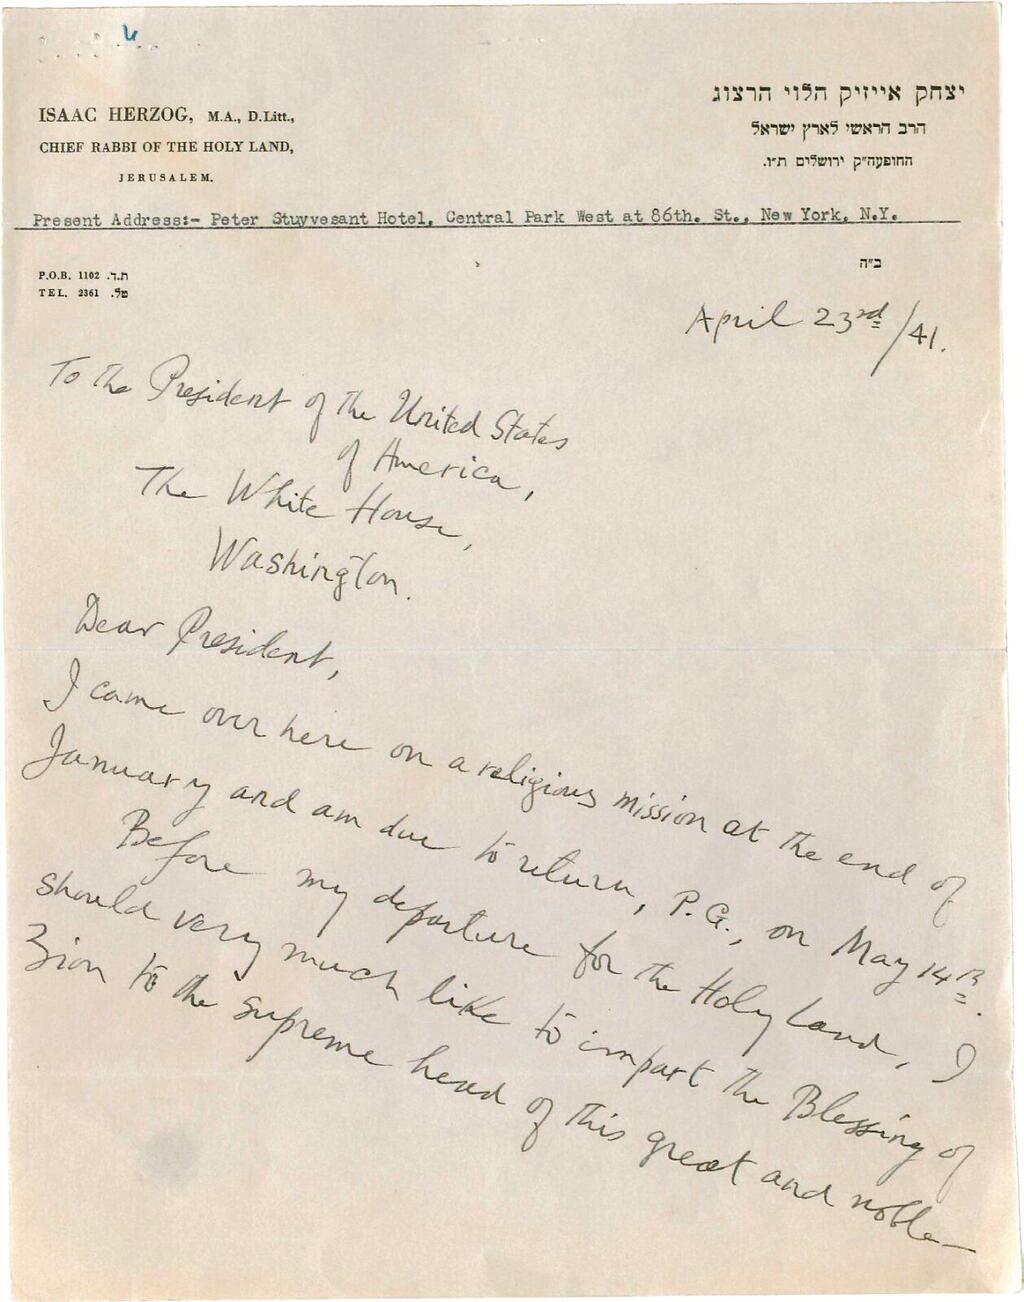 ISAAC HERZOG, M.A., D.Litt.,
CHIEF RABBI OF THE HOLY LAND,
JERUSALEM.
יצחק אייזיק הלוי הרצוג
הרב הראשי לארץ ישראל
החופעה"ק ירושלים ת"ו.
Present Address:- Peter Stuyvesant Hotel, Central Park West at 86th. St., New York, N.Y.
P.O.B. 1102 ת.ד.
TEL. 2361 טל.
ב"ה
April 23rd/41.
To the President of the United States
of America,
The White House,
Washington.
Dear President,
I came over here on a religious mission at the end of
January and am due to return, P.G., on May 14th.
Before my departure for the Holy Land, I
should very much like to impart the Blessing of
Zion to the supreme head of this great and noble